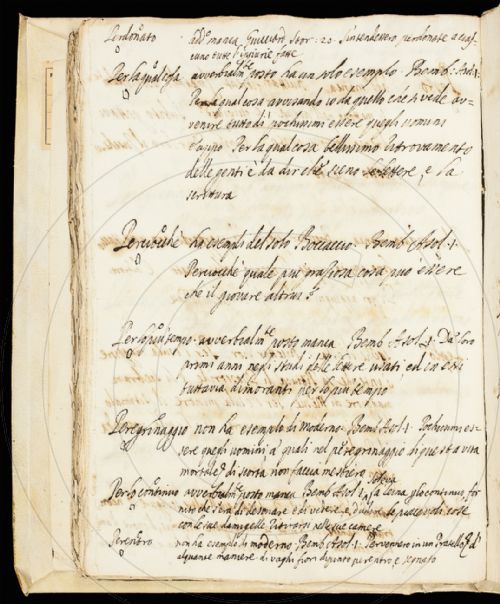 Perdonato add. manca Guicciard. Stor. 20. S'intendessero perdonate a cias
cuno tutte l'ingiurie fatte
Per la qual cosa avverbialm.te posto ha un solo esempio. Bemb. Asol. 1.
Per la qual cosa avvisando io da quello che si vede av-
venire tutto dì pochissimi essere quegli uomini
E appo Per la qual cosa bellissimo ritrovamento
delle genti è da dir che sieno le lettere, e la
scrittura
Perciocchè ha esempi del solo Boccaccio Bemb. Asol. 1.
Perciocchè quale più graziosa cosa può essere
che il giovare altrui?
Per lo più tempo avverbialm.te posto manca Bemb. Asol. 1. Da' loro
primi anni negli studi delle lettere usati ed in essi
tuttavia dimoranti per lo più tempo
Peregrinaggio non ha esempio di Moderno. Bemb. Asol. 1. Pochissimi es-
sere quegli uomini a' quali nel peregrinaggio di questa vita
mortale di scorta non faccia mestiero
Per lo continuo avverbialm.te posto manca Bemb. Asol. 1.
nito che s'era di desinare
con le sue damigelle ritrarsi nelle sue camere
Perentro non ha esempio di moderno Bemb. Asol. 1. Pervennero in un Pratello
alquante maniere di vaghi fiori dipinto per entro e segnato